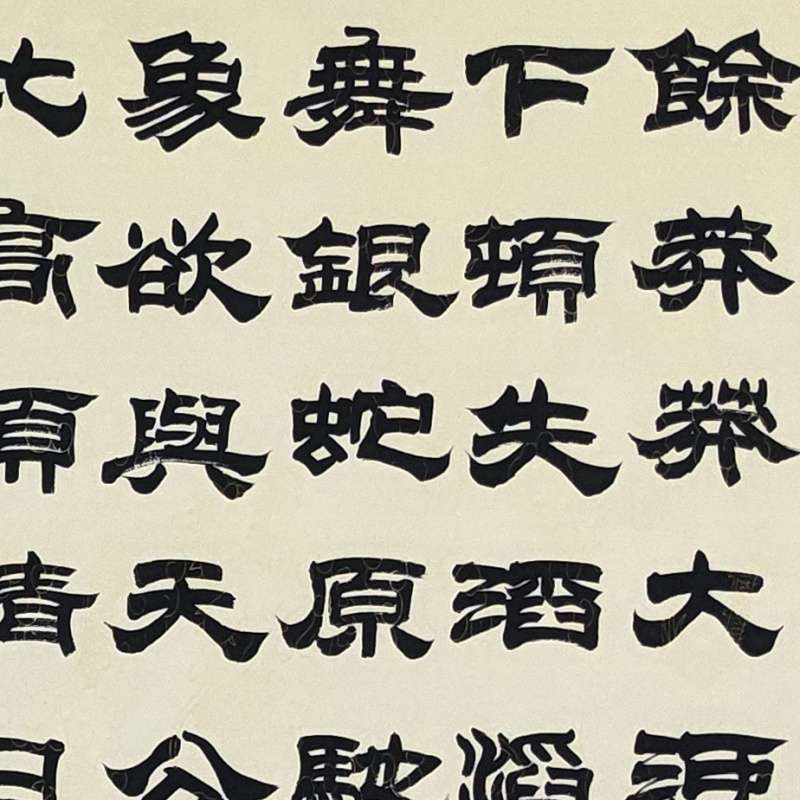 餘莽莽大河
下頓失滔滔
舞銀蛇原馳
象欲與天公
比高須